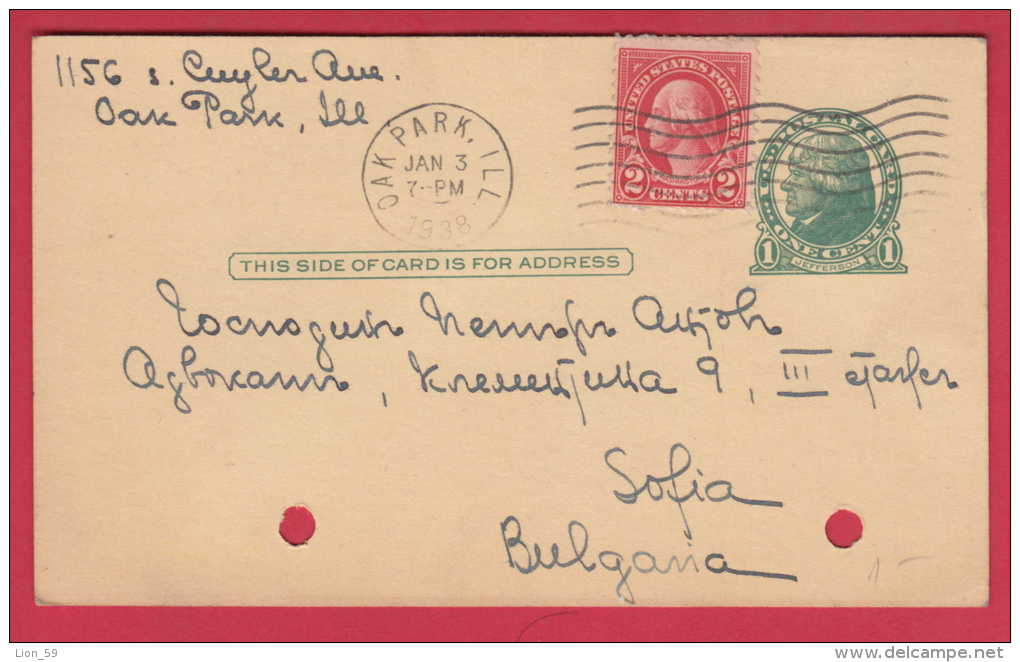 1156 S. Cuyler Ave.
Oak Park, Ill
OAK PARK, ILL.
JAN 3
7-PM
1938
UNITED STATES POSTAGE
2 CENTS 2
ONE CENT
1 JEFFERSON 1
THIS SIDE OF CARD IS FOR ADDRESS
Господинъ Петъръ
Адвокатъ, 9, III етажъ
Sofia
Bulgaria
1-
Lion_59